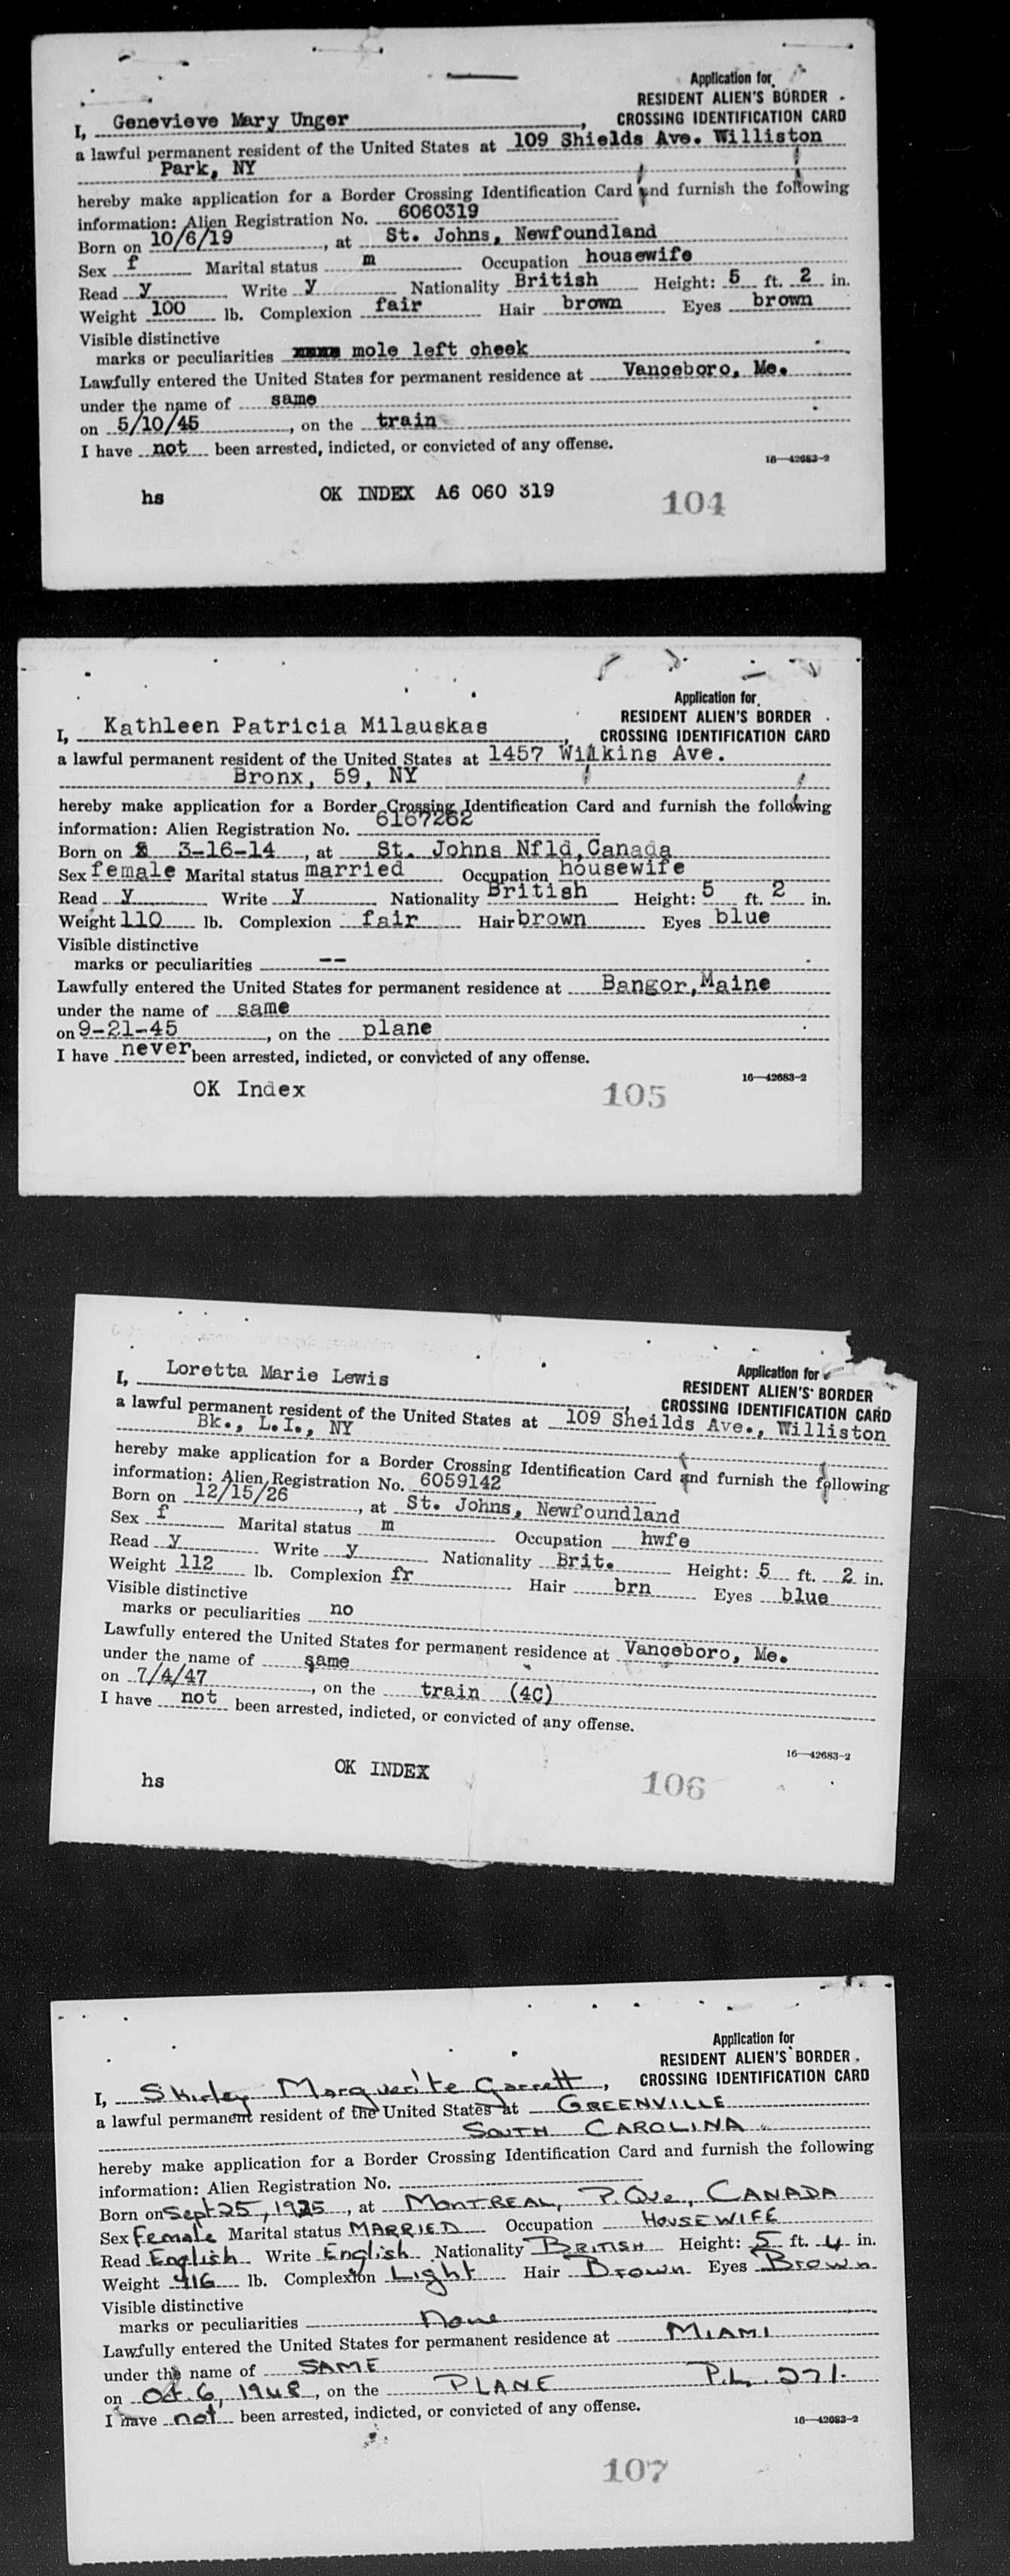 Application for
RESIDENT ALIEN'S BORDER
CROSSING IDENTIFICATION CARD
I, Genevieve Mary Unger,
a lawful permanent resident of the United States at 109 Shields Ave. Williston
Park, NY
hereby make application for a Border Crossing Identification Card and furnish the following
information: Alien Registration No. 6060319
Born on 10/6/19, at St. Johns, Newfoundland
Sex f Marital status m Occupation housewife
Read y Write y Nationality British Height: 5 ft. 2 in.
Weight 100 lb. Complexion fair Hair brown Eyes brown
Visible distinctive
marks or peculiarities mole left cheek
Lawfully entered the United States for permanent residence at Vanceboro, Me.
under the name of same
on 5/10/45, on the train
I have not been arrested, indicted, or convicted of any offense.
16—42683-2
hs OK INDEX A6 060 319 104
Application for
RESIDENT ALIEN'S BORDER
CROSSING IDENTIFICATION CARD
I, Kathleen Patricia Milauskas,
a lawful permanent resident of the United States at 1457 Wilkins Ave.
Bronx, 59, NY
hereby make application for a Border Crossing Identification Card and furnish the following
information: Alien Registration No. 6167262
Born on 3-16-14, at St. Johns Nfld, Canada
Sex female Marital status married Occupation housewife
Read y Write y Nationality British Height: 5 ft. 2 in.
Weight 110 lb. Complexion fair Hair brown Eyes blue
Visible distinctive
marks or peculiarities --
Lawfully entered the United States for permanent residence at Bangor, Maine
under the name of same
on 9-21-45, on the plane
I have never been arrested, indicted, or convicted of any offense.
16—42683-2
OK Index 105
Application for
RESIDENT ALIEN'S BORDER
CROSSING IDENTIFICATION CARD
I, Loretta Marie Lewis,
a lawful permanent resident of the United States at 109 Sheilds Ave., Williston
Bk., L.I., NY
hereby make application for a Border Crossing Identification Card and furnish the following
information: Alien Registration No. 6059142
Born on 12/15/26, at St. Johns, Newfoundland
Sex f Marital status m Occupation hwfe
Read y Write y Nationality Brit. Height: 5 ft. 2 in.
Weight 112 lb. Complexion fr Hair brn Eyes blue
Visible distinctive
marks or peculiarities no
Lawfully entered the United States for permanent residence at Vanceboro, Me.
under the name of same
on 7/4/47, on the train (4C)
I have not been arrested, indicted, or convicted of any offense.
16—42683-2
hs OK INDEX 106
Application for
RESIDENT ALIEN'S BORDER
CROSSING IDENTIFICATION CARD
I, Shirley Marguerite Garrett,
a lawful permanent resident of the United States at GREENVILLE
SOUTH CAROLINA
hereby make application for a Border Crossing Identification Card and furnish the following
information: Alien Registration No.
Born on Sept 25, 1925, at MONTREAL, P. Que, CANADA
Sex Female Marital status MARRIED Occupation HOUSEWIFE
Read English Write English Nationality BRITISH Height: 5 ft. 4 in.
Weight 116 lb. Complexion Light Hair Brown Eyes Brown
Visible distinctive
marks or peculiarities None
Lawfully entered the United States for permanent residence at MIAMI
under the name of SAME
on Oct. 6, 1948, on the PLANE P.L. 271.
I have not been arrested, indicted, or convicted of any offense.
16—42683-2
107